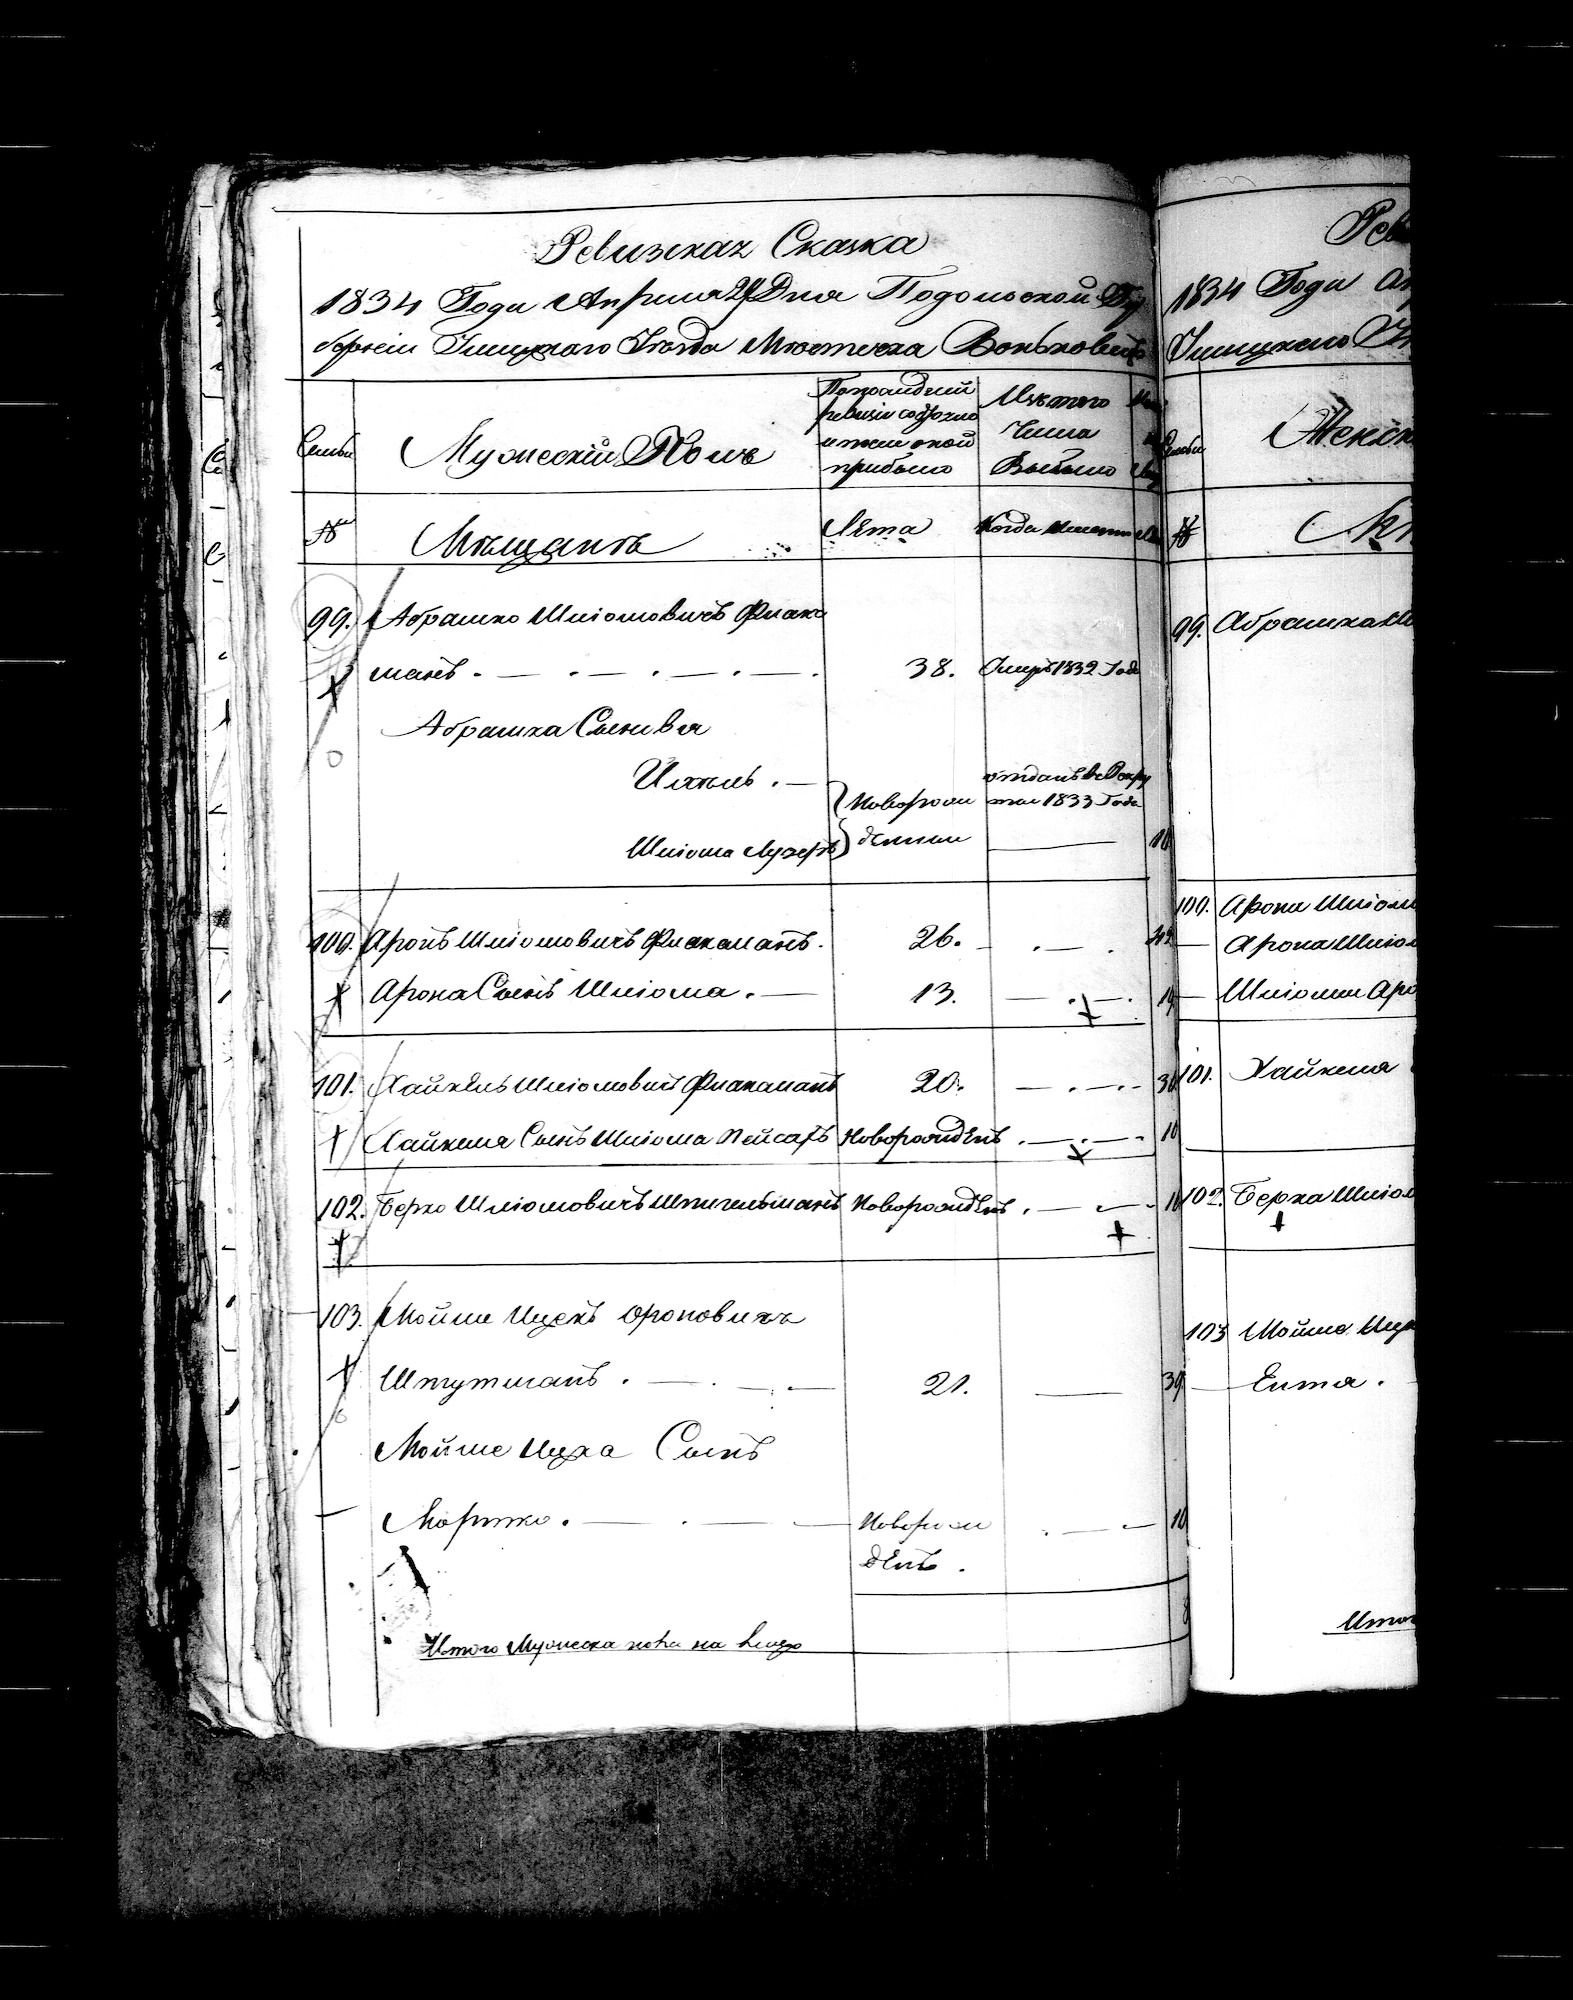 Ревизская Сказка
1834 Года Апреля 24 Дня Подольской Гу
берніи Ушицкаго Уезда Местечка Воньковецъ
Семьи
Мужескій Полъ
По последней
ревизіи состояло
и после оной
прибыло
Изъ того
Числа
Выбыло
№
Мещанъ
Лета
Когда именно
99. Абрашко Шліомовичъ Флакс
манъ . — . — . — . — . 38. Умеръ 1832 Года
Абрашка Сыновья
Ицколь . —
Новорож
отданъ въ Рекру
ты 1833 Года
Шліома Лузеръ
денныи
—
10
100. Аронъ Шліомовичъ Флаксманъ. 26. — . — . 42
Арона Сынъ Шліома . — 13. — . — .
101. Хайкель Шліомовичъ Флаксманъ 20. — . — .
Хайкеля Сынъ Шліома Пейсахъ Новорожденъ . — . — . 10
102. Берко Шліомовичъ Шпигельманъ Новорожденъ . — . —
103. Мойше Ицекъ Ароновичъ
Штутманъ . — . — . — 21. — 39
Мойше Ицка Сынъ
Моршко . — . — — Новорож . — — 10
денъ .
Итого Мужеска пола на лицо
1834 Года Ап
Ушицкаго
Семьи
Женск
№
99. Абрашка
100. Арона Шліом
— Арона Шліом
— Шліомы Аро
101. Хайкеля
102. Берка Шліом
103 Мойше Ицк
— Ента .
Итог